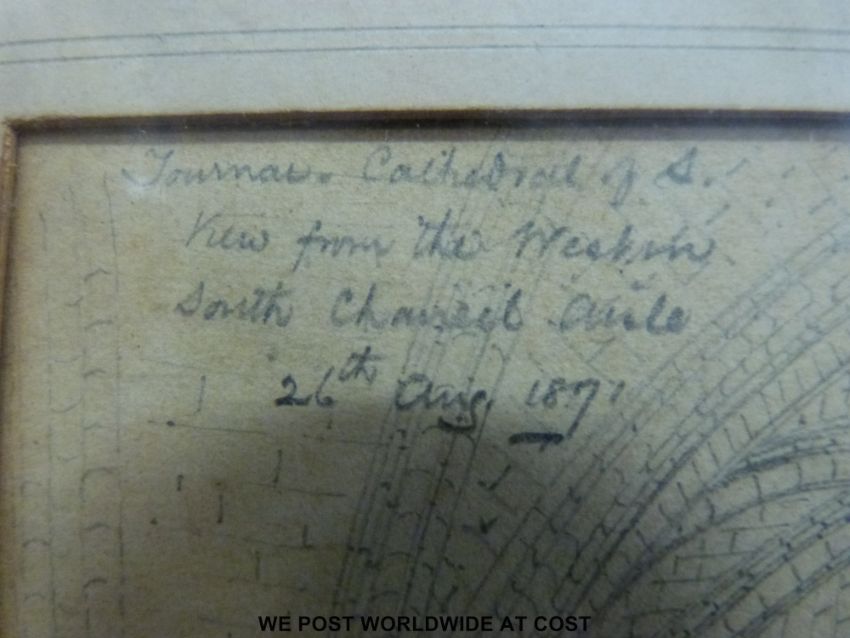 Tournai. Cathedral of S.
View from the Western
South Chancel Aisle
26th Aug. 1871
WE POST WORLDWIDE AT COST